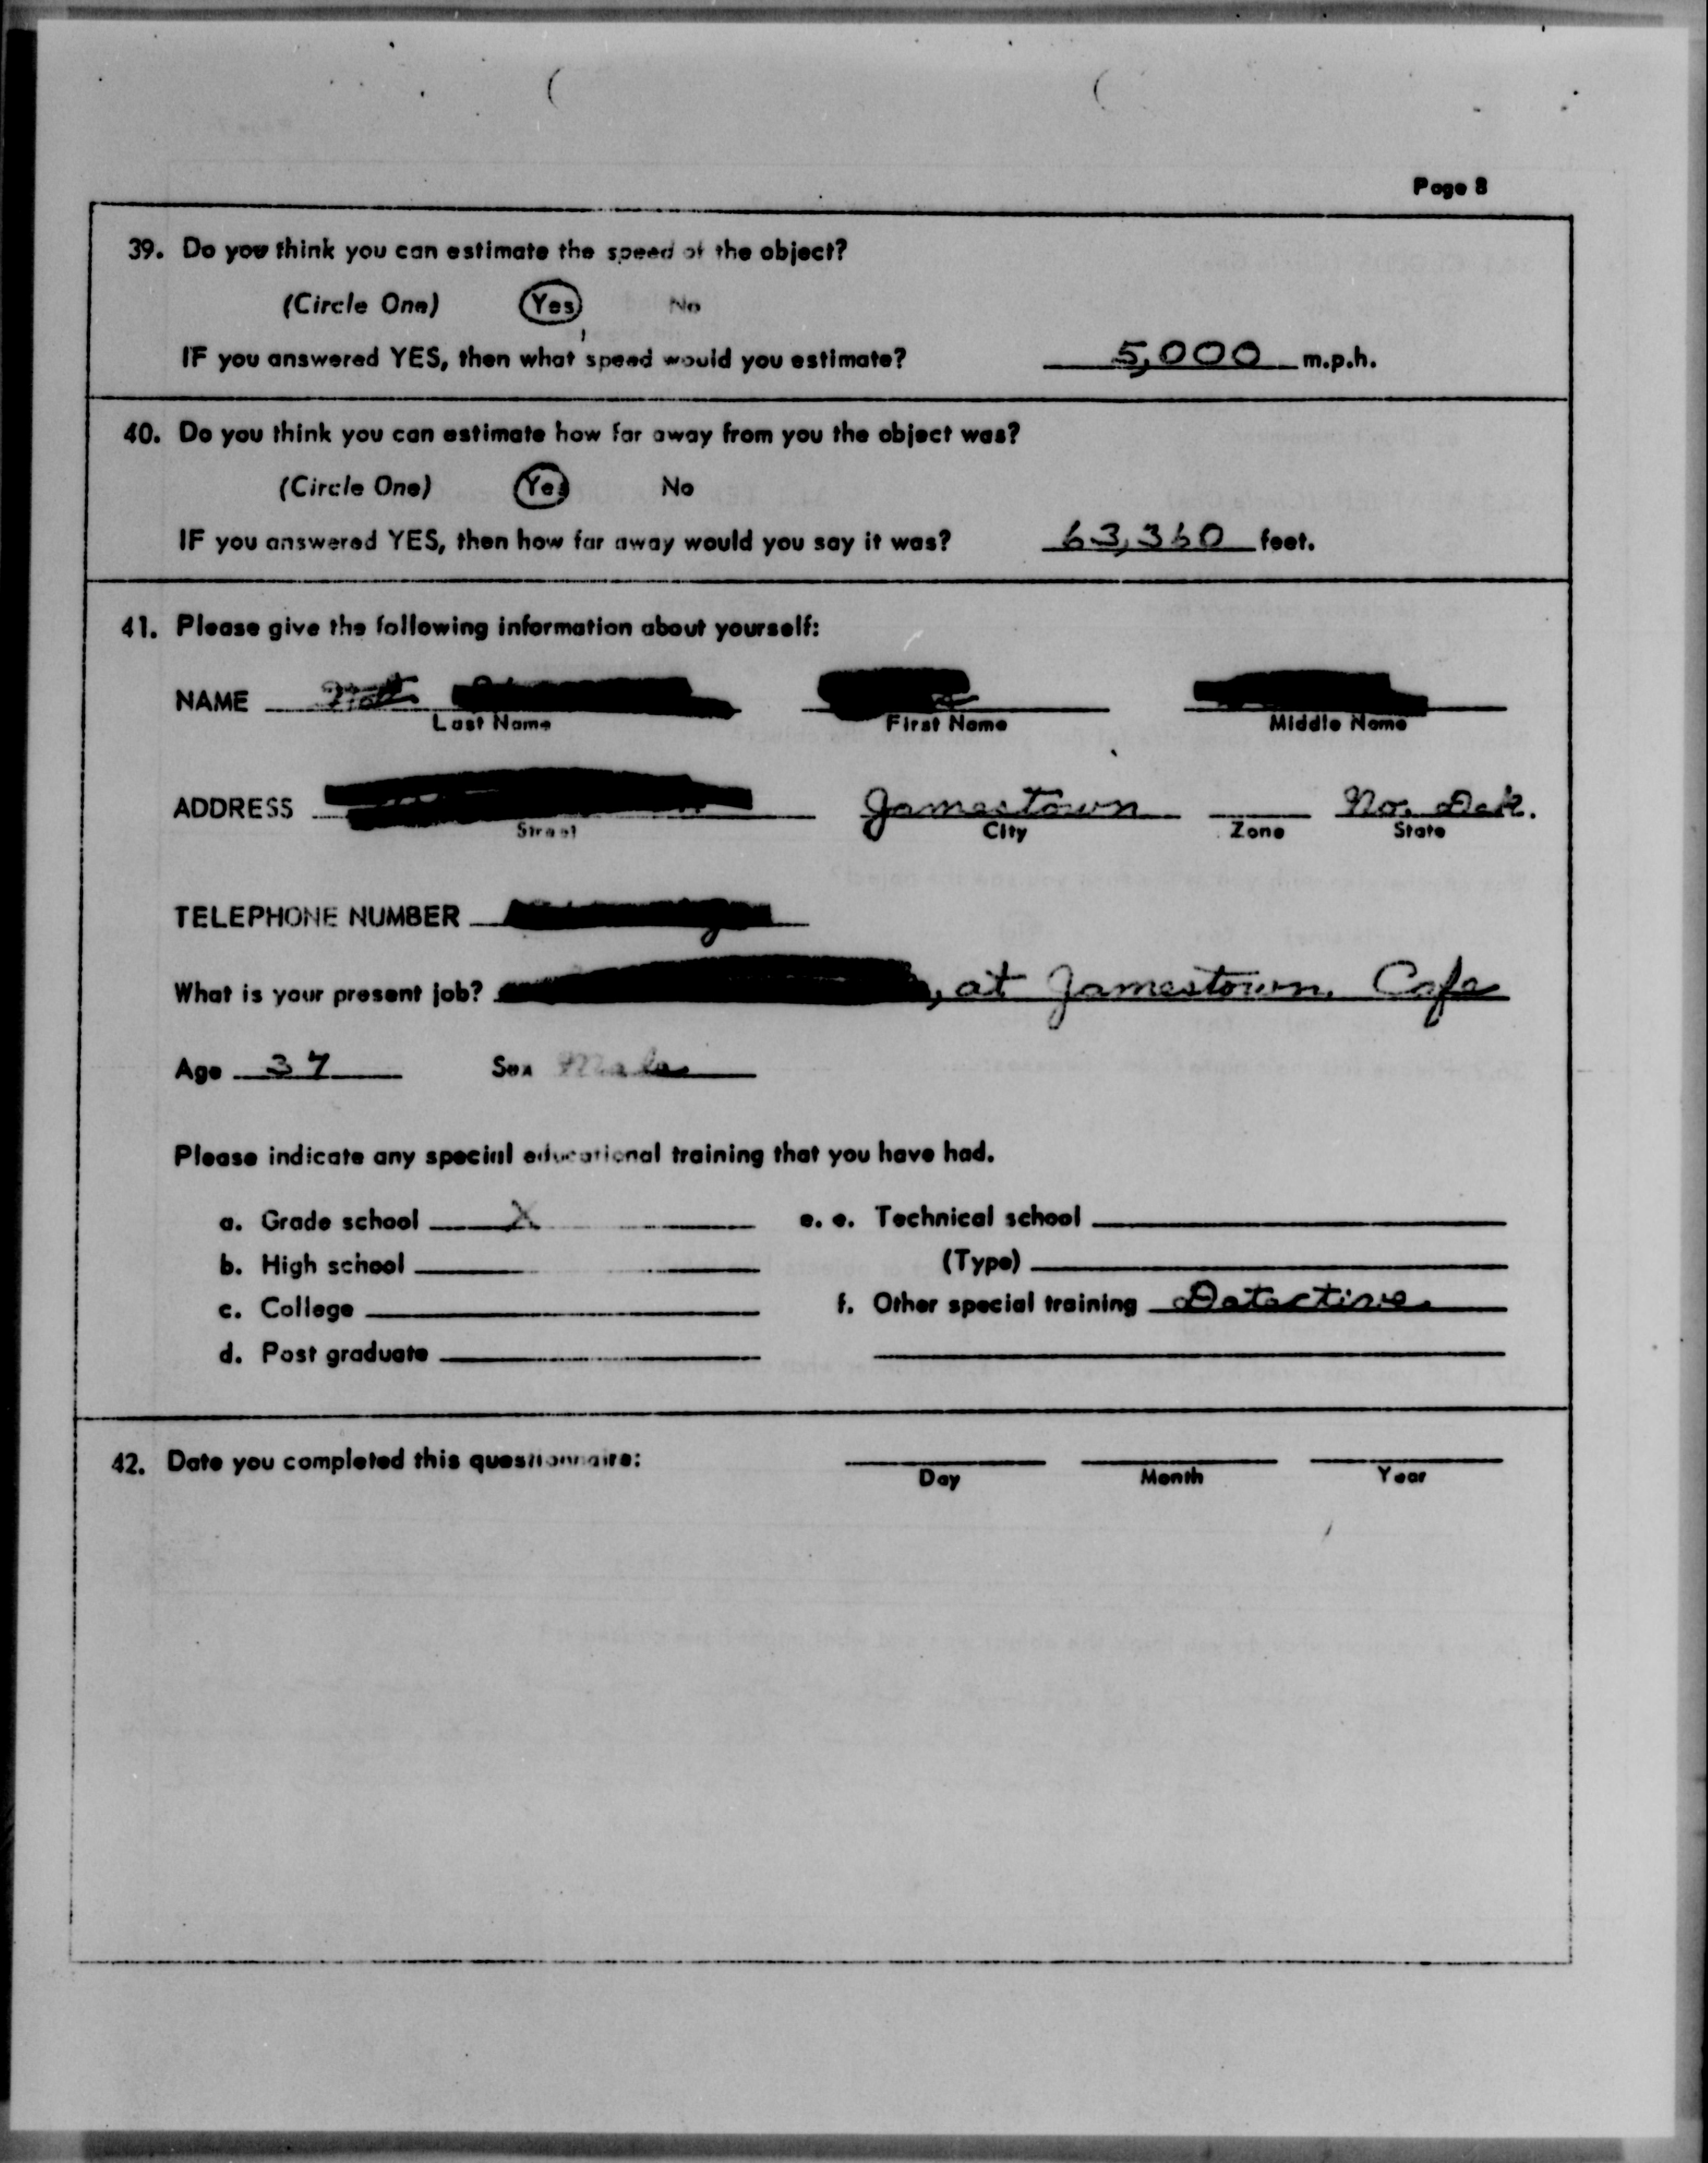 Page 8
39. Do you think you can estimate the speed of the object?
(Circle One) Yes No
IF you answered YES, then what speed would you estimate? 5,000 m.p.h.
40. Do you think you can estimate how far away from you the object was?
(Circle One) Yes No
IF you answered YES, then how far away would you say it was? 63,360 feet.
41. Please give the following information about yourself:
NAME
Last Name First Name Middle Name
ADDRESS Jamestown No. Dak.
Street City Zone State
TELEPHONE NUMBER
What is your present job? , at Jamestown Cafe
Age 37 Sex Male
Please indicate any special educational training that you have had.
a. Grade school X e. e. Technical school
b. High school (Type)
c. College f. Other special training Detective
d. Post graduate
42. Date you completed this questionnaire:
Day Month Year